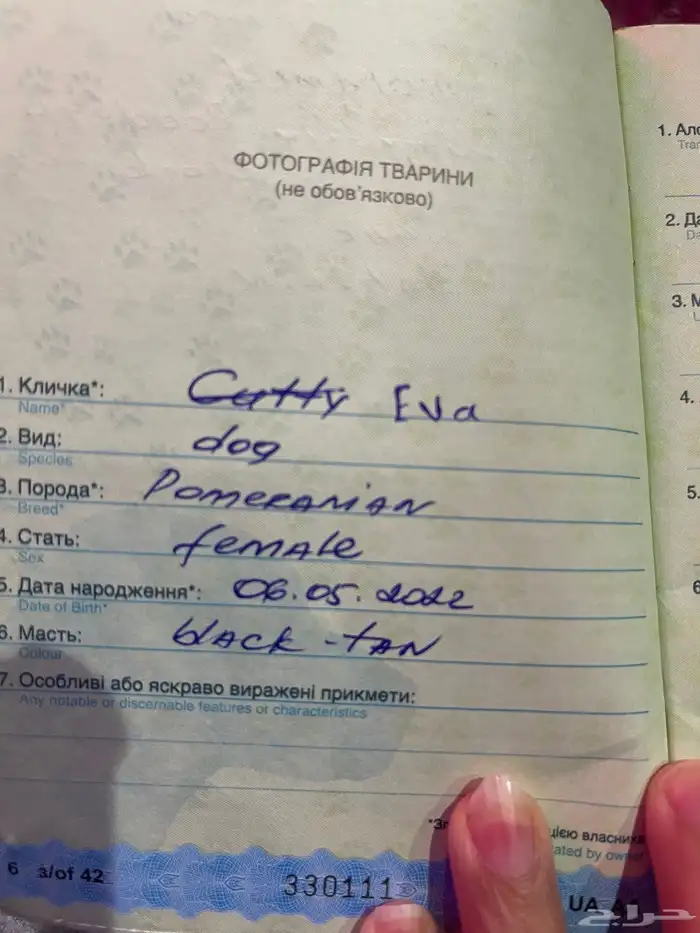 ФОТОГРАФІЯ ТВАРИНИ
(не обов'язково)
1. Кличка*: Cutty Eva
Name*
2. Вид: dog
Species
3. Порода*: Pomeranian
Breed*
4. Стать: female
Sex
5. Дата народження*: 06.05.2022
Date of Birth*
6. Масть: black-tan
Colour
7. Особливі або яскраво виражені прикмети:
Any notable or discernable features or characteristics
цією власника
ated by owner
6 3/of 42
330111
UA A
حراج
1. Ало
Tran
2. Да
Da
3. М
L
4.
5.
6